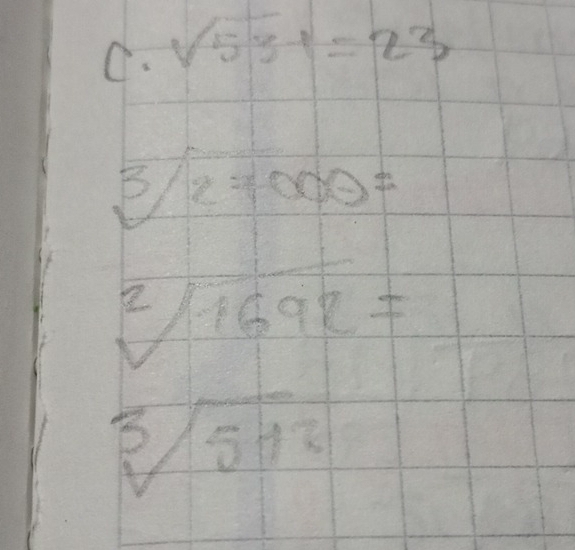 C. √531 = 23
³√27000 =
²√1692 =
³√512